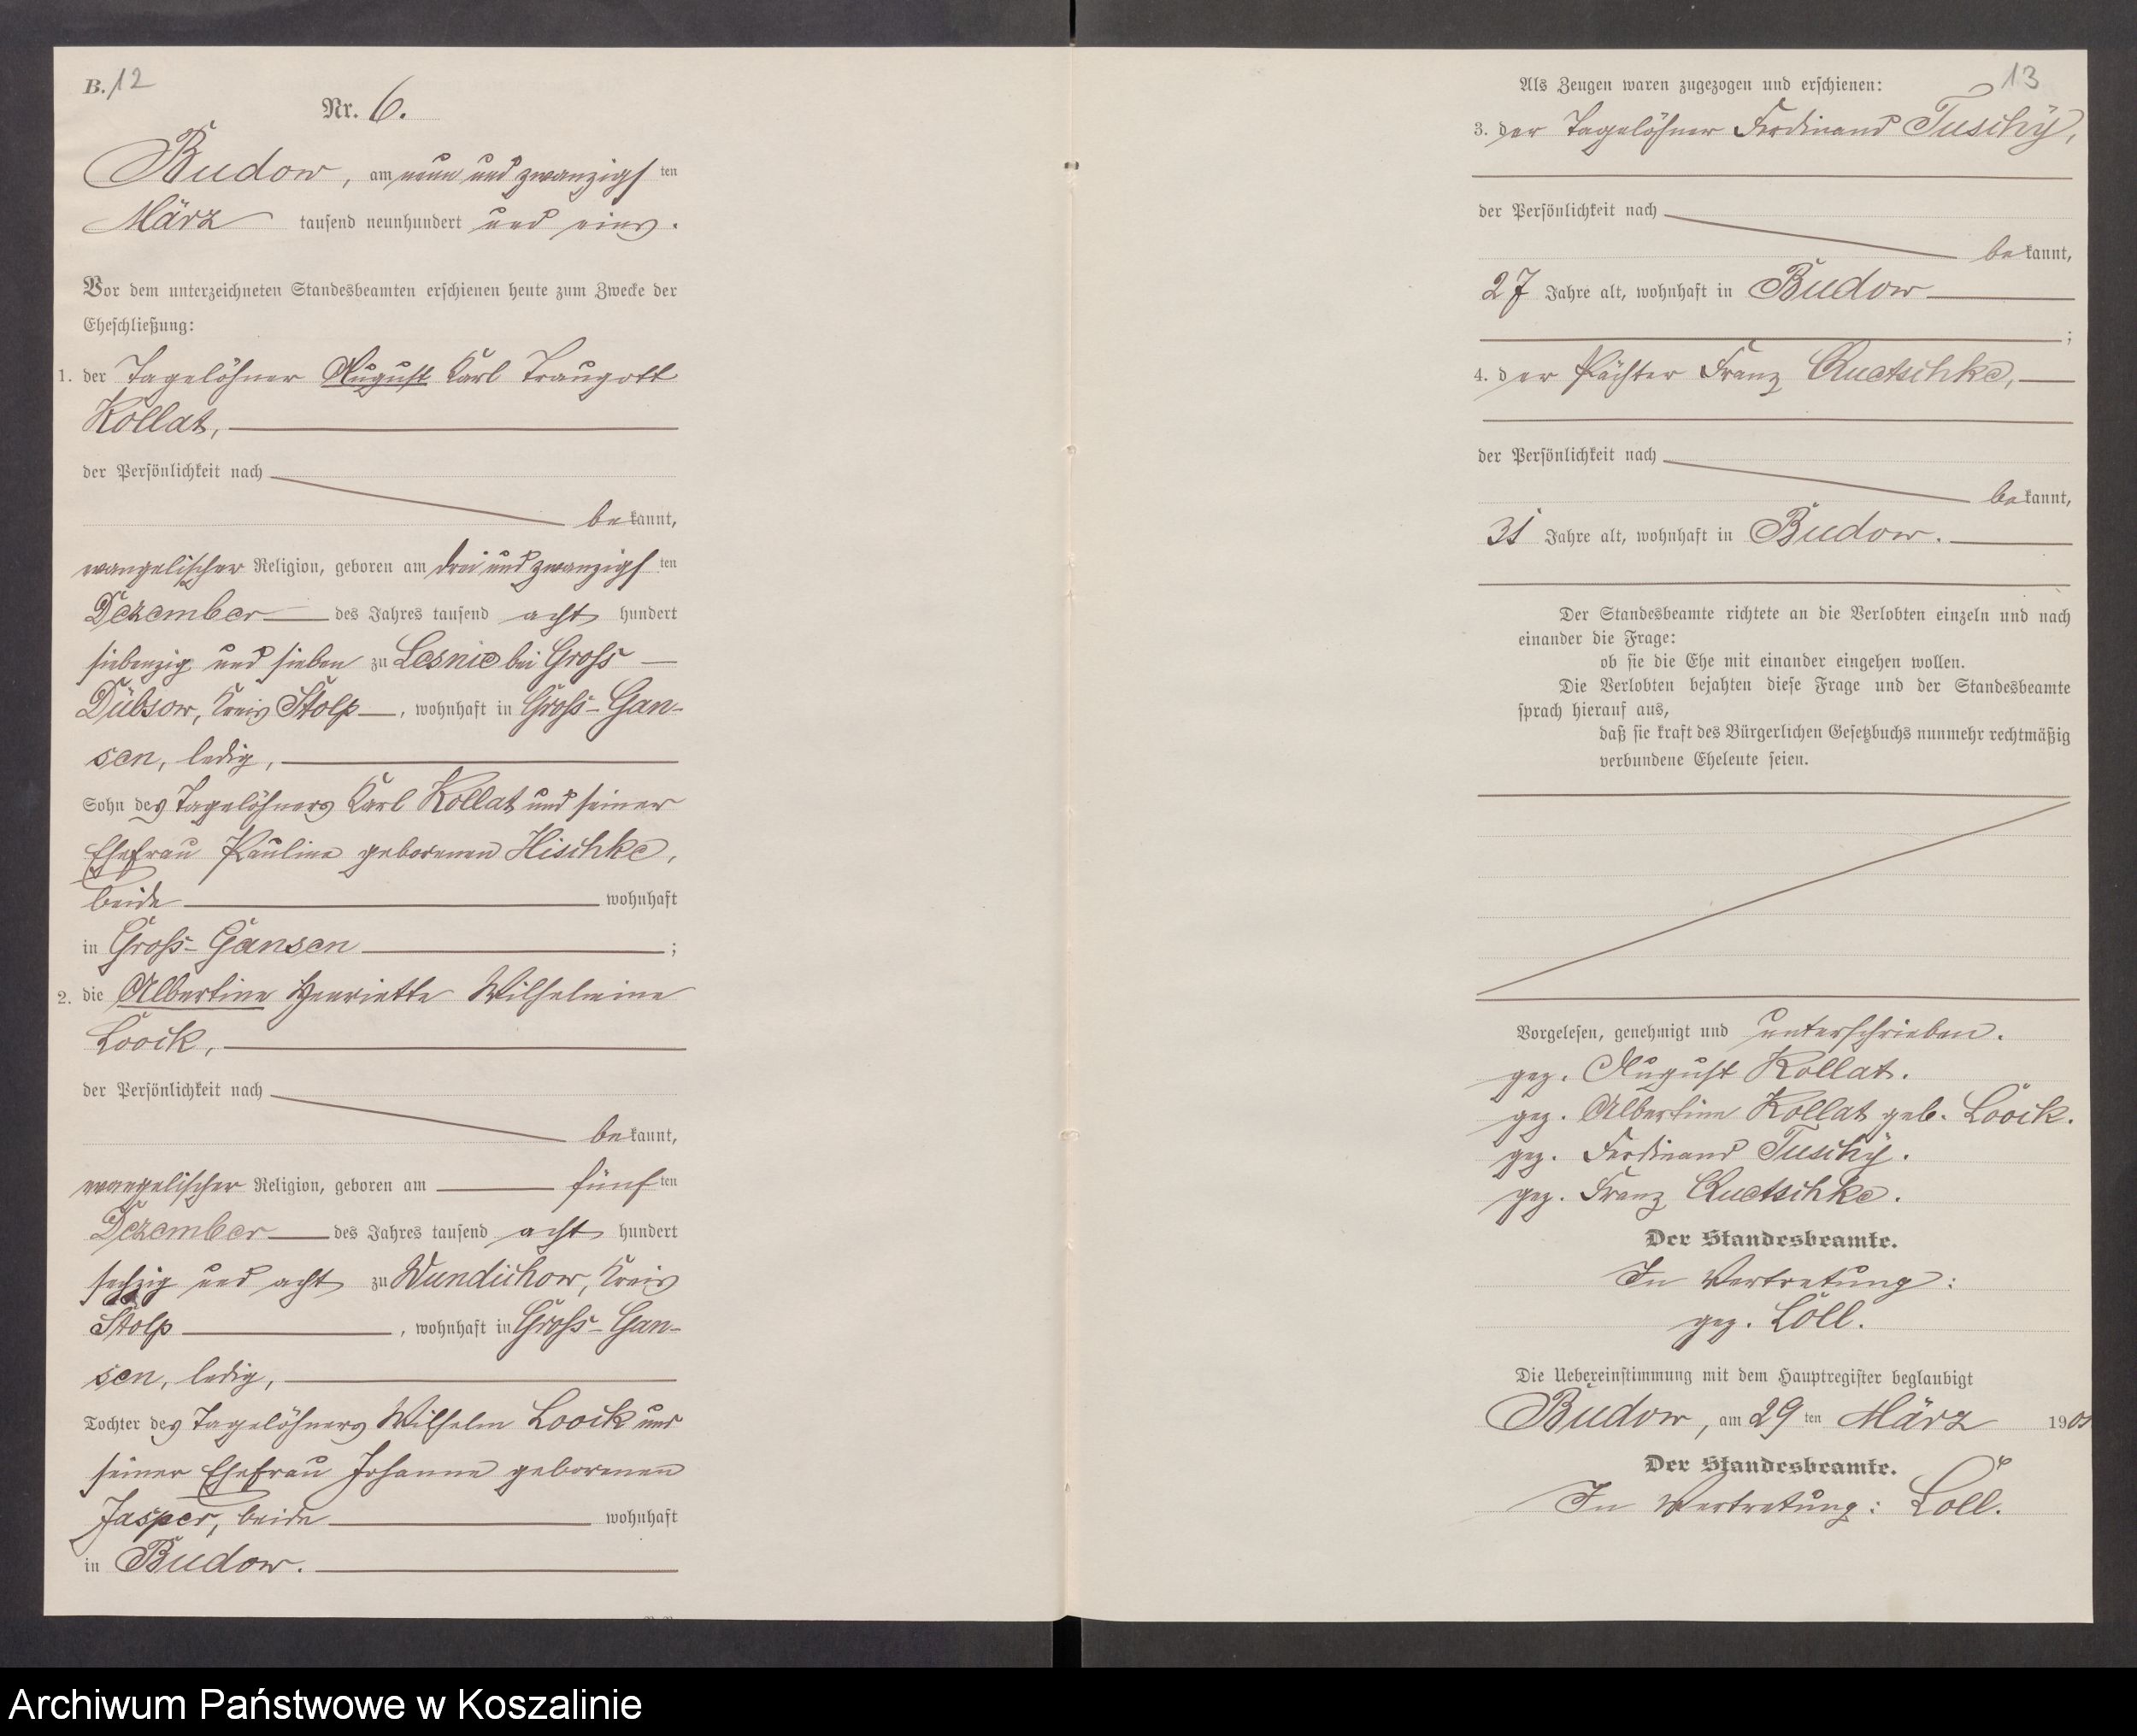 B. 12
Nr. 6.
Budow, am neun und zwanzigsten
März tausend neunhundert und eins.
Vor dem unterzeichneten Standesbeamten erschienen heute zum Zwecke der
Eheschließung:
1. der Tagelöhner August Karl Traugott
Kollat,
der Persönlichkeit nach
bekannt,
evangelischer Religion, geboren am drei und zwanzigsten
Dezember des Jahres tausend acht hundert
siebenzig und sieben zu Lesnic bei Groß
Dübsow, Kreis Stolp, wohnhaft in Groß-Gan-
sen, ledig,
Sohn des Tagelöhners Karl Kollat und seiner
Ehefrau Pauline geborenen Hischke,
beide wohnhaft
in Groß-Gansen;
2. die Albertine Henriette Wilhelmine
Loock,
der Persönlichkeit nach
bekannt,
evangelischer Religion, geboren am fünften
Dezember des Jahres tausend acht hundert
sechzig und acht zu Wundichow, Kreis
Stolp, wohnhaft in Groß-Gan-
sen, ledig,
Tochter des Tagelöhners Wilhelm Loock und
seiner Ehefrau Johanne geborenen
Jasper, beide wohnhaft
in Budow.
13
Als Zeugen waren zugezogen und erschienen:
3. der Tagelöhner Ferdinand Tuschy,
der Persönlichkeit nach
bekannt,
27 Jahre alt, wohnhaft in Budow
;
4. der Pächter Franz Quetschke,
der Persönlichkeit nach
bekannt,
31 Jahre alt, wohnhaft in Budow.
Der Standesbeamte richtete an die Verlobten einzeln und nach
einander die Frage:
ob sie die Ehe mit einander eingehen wollen.
Die Verlobten bejahten diese Frage und der Standesbeamte
sprach hierauf aus,
daß sie kraft des Bürgerlichen Gesetzbuchs nunmehr rechtmäßig
verbundene Eheleute seien.
Vorgelesen, genehmigt und unterschrieben.
gez. August Kollat.
gez. Albertine Kollat geb. Loock.
gez. Ferdinand Tuschy.
gez. Franz Quetschke.
Der Standesbeamte.
In Vertretung:
gez. Löll.
Die Uebereinstimmung mit dem Hauptregister beglaubigt
Budow, am 29ten März 1901
Der Standesbeamte.
In Vertretung: Löll.
Archiwum Państwowe w Koszalinie